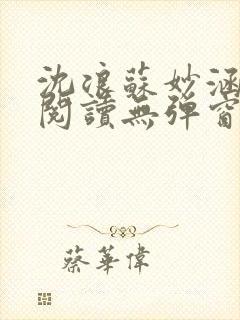 沈浪蘇妙涵
閱讀無彈窗
蔡華偉